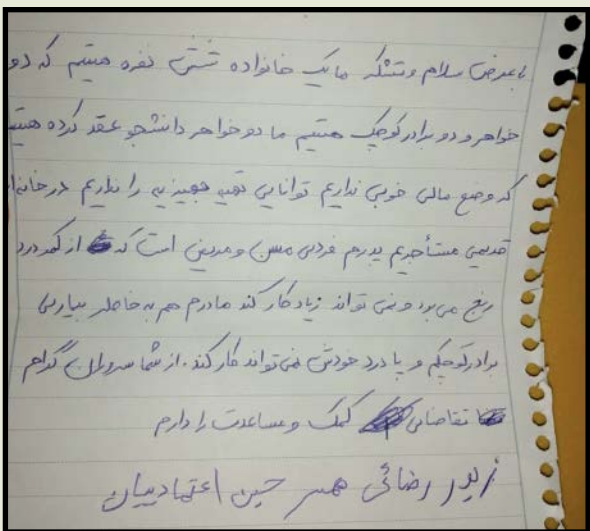 با عرض سلام و تشکر ما یک خانواده شش نفره هستیم که دو
خواهر و دو برادر کوچک هستیم ما دو خواهر دانشجو عقد کرده هستیم
که وضع مالی خوبی نداریم توانایی تهیه جهیزیه را نداریم در خانه‌ای
قدیمی مستأجریم پدرم فردی مسن و مریض است که از کمر درد
رنج می‌برد و نمی تواند زیاد کار کند مادرم هم به خاطر بیماری
برادر کوچکم و پا درد خودش نمی تواند کار کند. از شما سروران گرام
تقاضای کمک و مساعدت را دارم
رضائی همسر حسین اعتمادییان